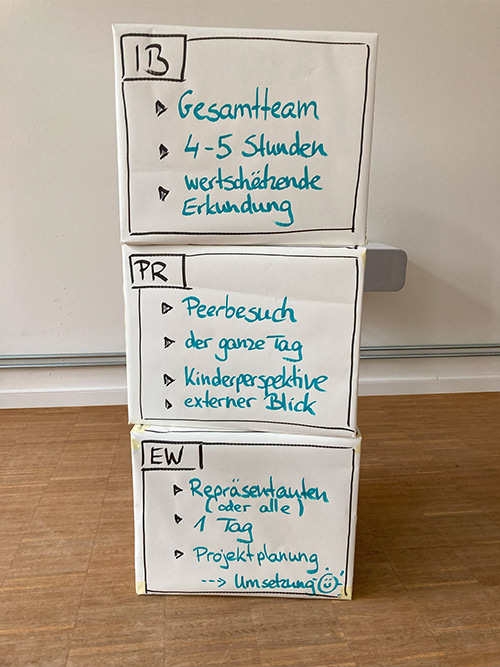 IB
Gesamtteam
4-5 Stunden
wertschätzende
Erkundung
PR
Peerbesuch
der ganze Tag
Kinderperspektive
externer Blick
EW
Repräsentanten
(oder alle)
1 Tag
Projektplanung
--> Umsetzung